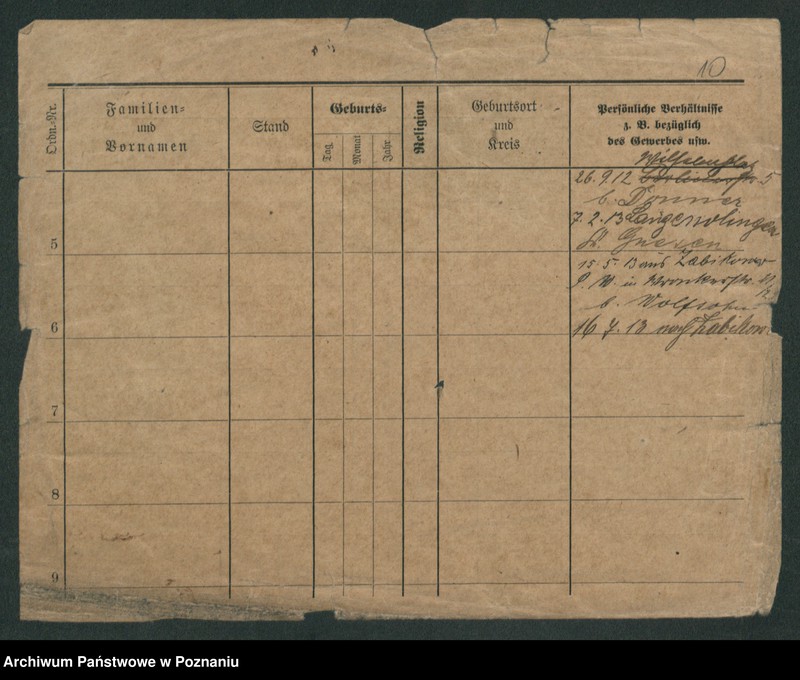 10
Ordn.-Nr.
Familien-
und
Vornamen
Stand
Geburts-
Tag
Monat
Jahr
Religion
Geburtsort
und
Kreis
Persönliche Verhältnisse
z. B. bezüglich
des Gewerbes usw.
Wilhelmstr
26.9.12 Berlinerstr. 5
b. Donner
7.2.13
Kr. Gnesen
5
15.5.13 aus Zabikowo
P. W. in Wronkerstr.
b. Wolfsohn
6
16.7.13 nach Zabikow
7
8
9
Archiwum Państwowe w Poznaniu